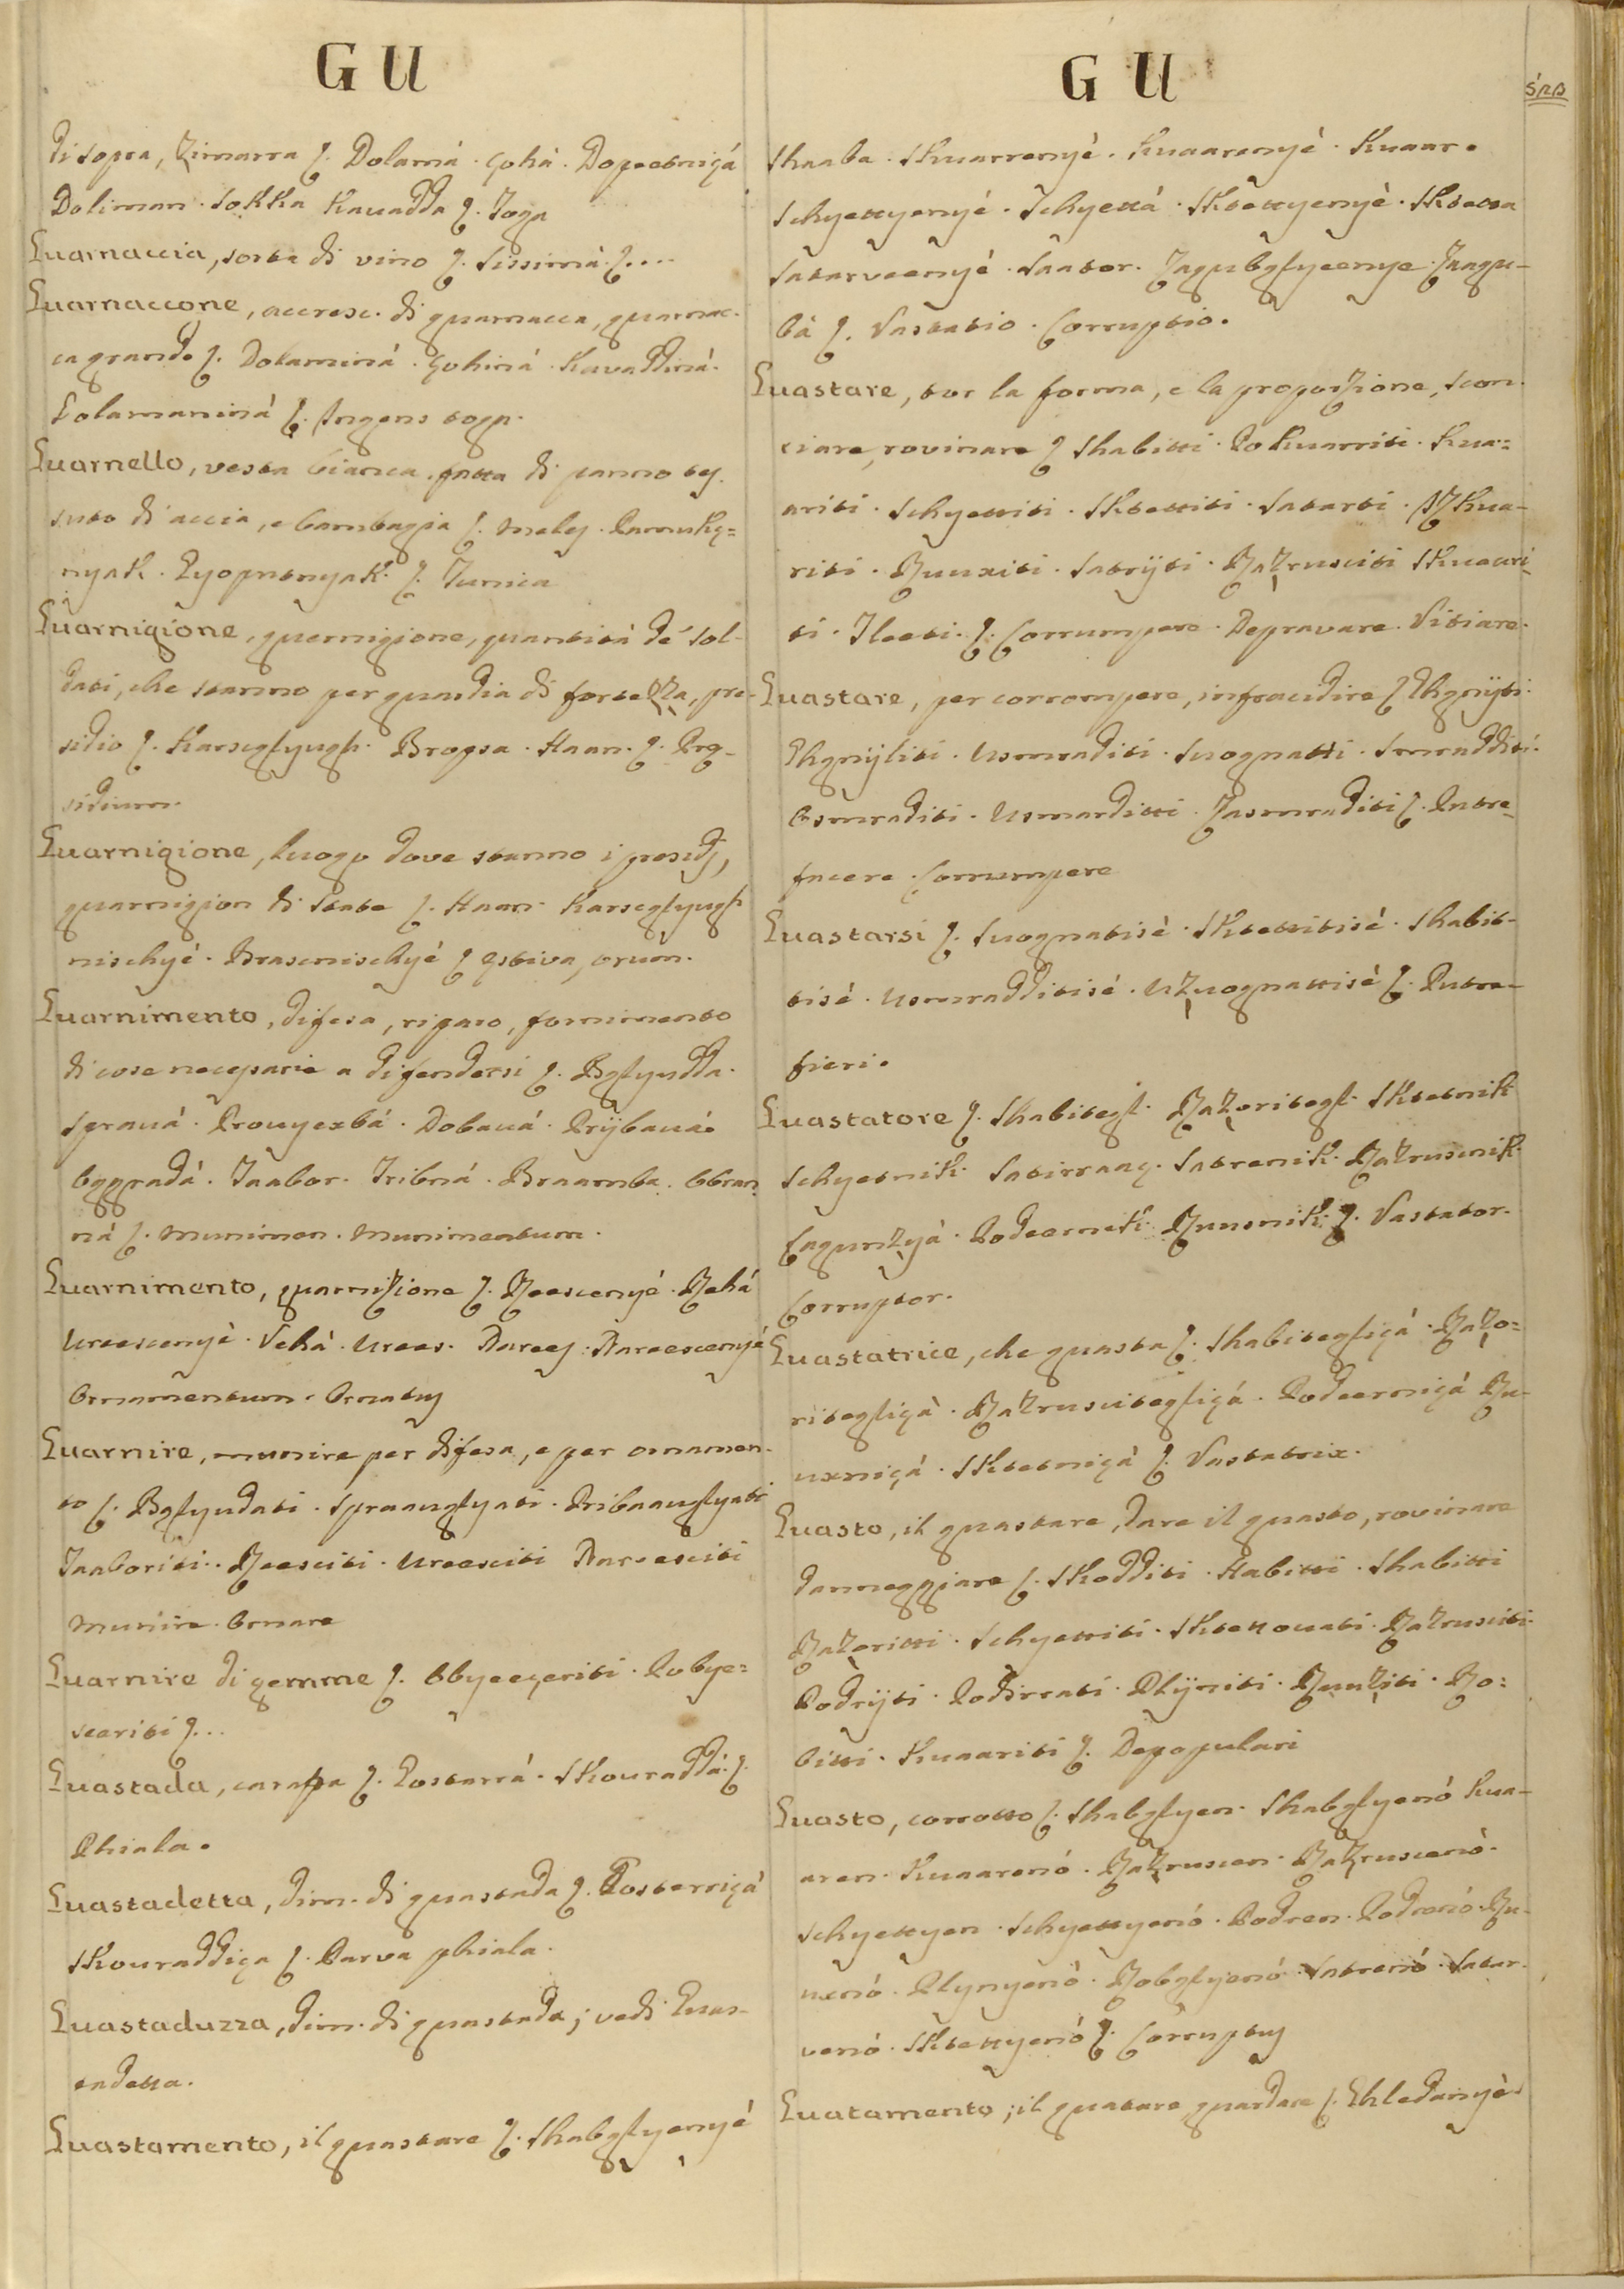 G U
di sopra, Zimarra ſ. Dolamá. çohá. Dopeetniçá
Doliman. sokka kauadda ſ. Toga
Guarnaccia, sorte di vino ſ. sissimá. ſ....
Guarnaccone, accresc. di guarnacca, guarnac-
ca grande ſ. Dolaminá. çohiná. kavaddiná.
Dolamaniná ſ. Ingens toga.
Guarnello, vesta bianca fatta di panno tes-
suto di accia, e bambagia ſ. meleg. Pamukç=
nyak. Lyoputnyak. ſ. Tunica
Guarnigione, guernigione, quantità de' sol-
dati, che stanno per guardia di fortezza, pre-
sidio ſ. karscglyugh. Bropsa. Haan. ſ. Prę-
sidium.
Guarnigione, luogo dove stanno i presidj,
guarnigion di state ſ. Haan. karscglyugh
nischyé. Brascnischyé ſ ęstiva, orum.
Guarnimento, difesa, riparo, fornimento
di cose necessarie a difendersi ſ. Bglyudda.
sprauá. Prouyexbá. Dobauá. Prijbauá.
Oggradá. Taabor. Tribná. Braamba. Obran=
ná ſ. munimen. munimentum.
Guarnimento, guarnizione ſ. Reescenyé. Rehá
Ureescenyé. Vehá. Urees. Narees. Nareescenyé
Ornamentum. Ornatus
Guarnire, munire per difesa, e per ornamen-
to ſ. Bglyudati. spraauglyati. Pribaauglyati
Taaboriti. Reesciti. Ureesciti Nareesciti
munire. Ornare
Guarnire di gemme ſ. Obyeeçeriti. Pobye=
sceriti ſ...
Guastada, caraffa ſ. Gostarrá. skouraddá. ſ.
Phiala.
Guastadetta, dim. di guastada ſ. Gosterriçá
skouraddiça ſ. Parva phiala.
Guastaduzza, dim. di guastada; vedi Guas-
tadetta.
Guastamento, il guastare ſ. shabglyenyé
G U
shaaba. skuarrenyé. kuaarenyé. kuaar.
schyettyenyé. schyettá. sktettyenyé. sktetta
satarveenyé. saator. Zagubglyeenye. Zaagu-
bá ſ. Vastatio. Corruptio.
Guastare, tor la forma, e la proporzione, scon-
ciare, rovinare ſ shabitti. Pokuarriti. kua=
ariti. schyettiti. sktettiti. satarti. Izkua-
riti. Ruuxiti. satrijti. Razrusciti skuaari-
ti. Zleeti. ſ. Corrumpere. Depravare. Vitiare.
Guastare, per corrompere, infracidire ſ Ghgnijti.
Ghgnijliti. Usmraditi. suognatti. smradditi.
Osmraditi. Usmarditti. Zasmraditi ſ. Putre-
facere. Corrumpere
Guastarsi ſ. suognatisé. sktettitisé. shabit-
tisé. usmradditisé. uzuognattisé ſ. Putre-
fieri.
Guastatore ſ. shabitegl. Razoritegl. sktetnik
schyetnik. satirraaç. satrenik. Razruscnik.
Cagunzyá. Podeernik. Ruusnik. ſ. Vastator.
Corruptor.
Guastatrice, che guasta ſ. shabitegliçá. Razo=
ritegliçá. Razruscitegliçá. Podeerniçá Ru-
uxniçá. sktetniçá ſ. Vastatrix.
Guasto, il guastare, dare il guasto, rovinare
danneggiare ſ. skodditi. Habitti. shabitti
Razoritti. schyettiti. sktettouati. Razrusciti.
Podrijti. Podirrati. Plijniti. Ruuziti. Ro=
bitti. kuaariti ſ. Depopulari
Guasto, corrotto ſ. shabglyen. shabglyenó kua-
aren. kuaarenó. Razruscen. Razruscenó.
schyettyen. schyettyenó. Podren. Podrenó. Ru-
uxenó. Plynyenó. Robglyenó. satrenó. satar-
venó. sktettyenó ſ. Corruptus
Guatamento; il guatare guardare ſ. Ghledanyé